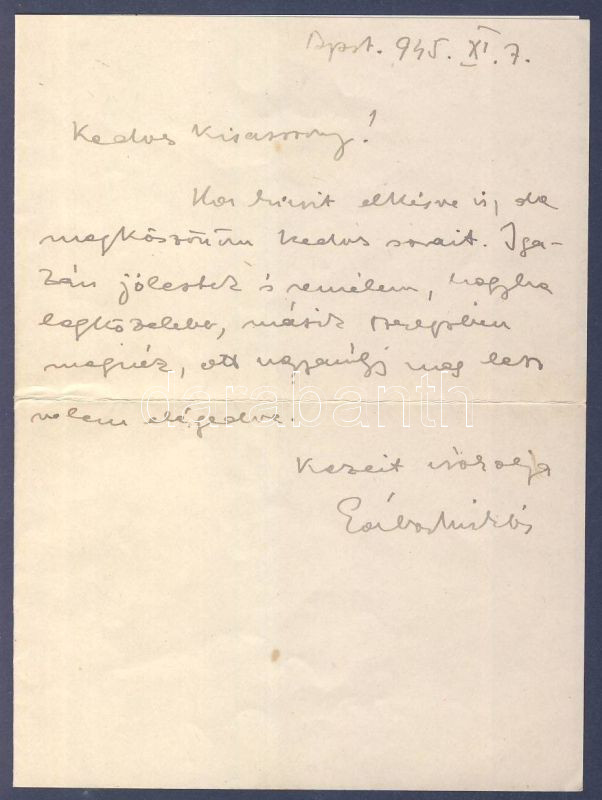 Bpst. 945. XI. 7.
Kedves Kisasszony!
Ha kissit elkésve is, de
megköszönöm kedves sorait. Iga-
zán jólestek és remélem, hogyha
legközelebb, másik szerepben
megnéz, ott ugyanúgy meg lesz
velem elégedve.
darabanth
Kezeit csókolja
Gábor Miklós